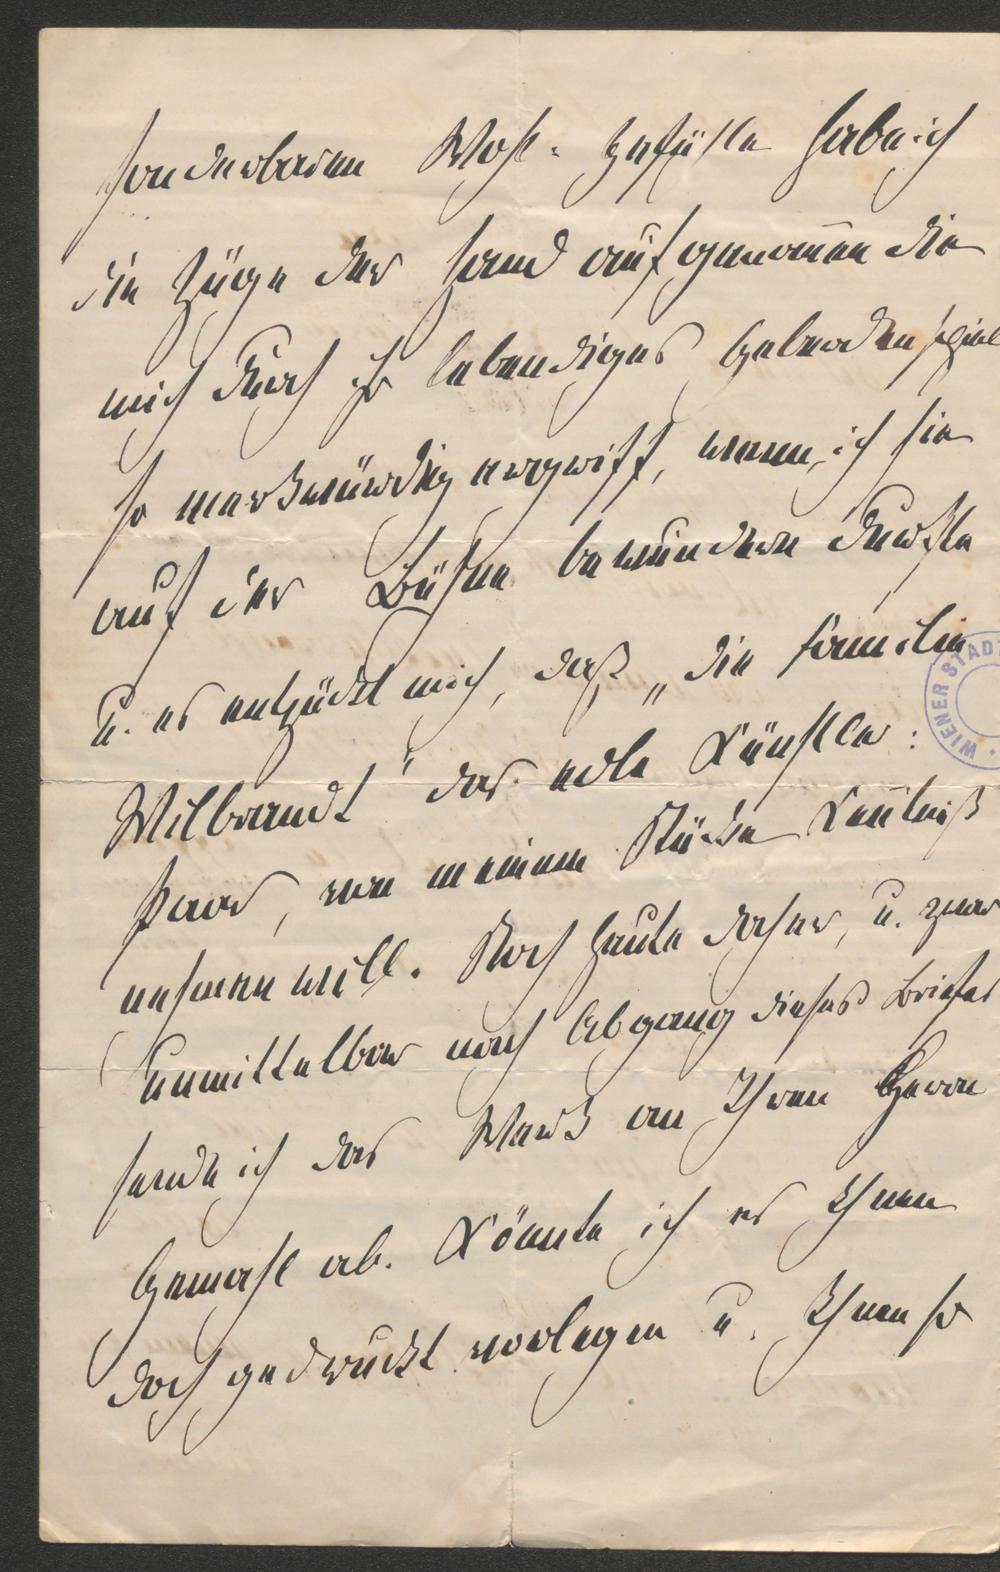 sonderbaren Wohl-gefühle habe ich
die Züge der Hand aufgenomen die
mich durch ihr lebendiges Geberdenspiel
so merkwürdig ergriff, wenn ich sie
auf der Bühne bewundern durfte
u. es entzückt mich, daß „die Familie
Wilbrandt" das edle Künstler:
paar, von meinem Stücke Kentniß
nehmen will. Noch heute daher, u. zwar
unmittelbar nach Abgang dieses Briefes
sende ich das Werk an Ihren Herrn
Gemahl ab. Könnte ich es Ihnen
doch gedruckt vorlegen u. Ihnen so
WIENER STAD